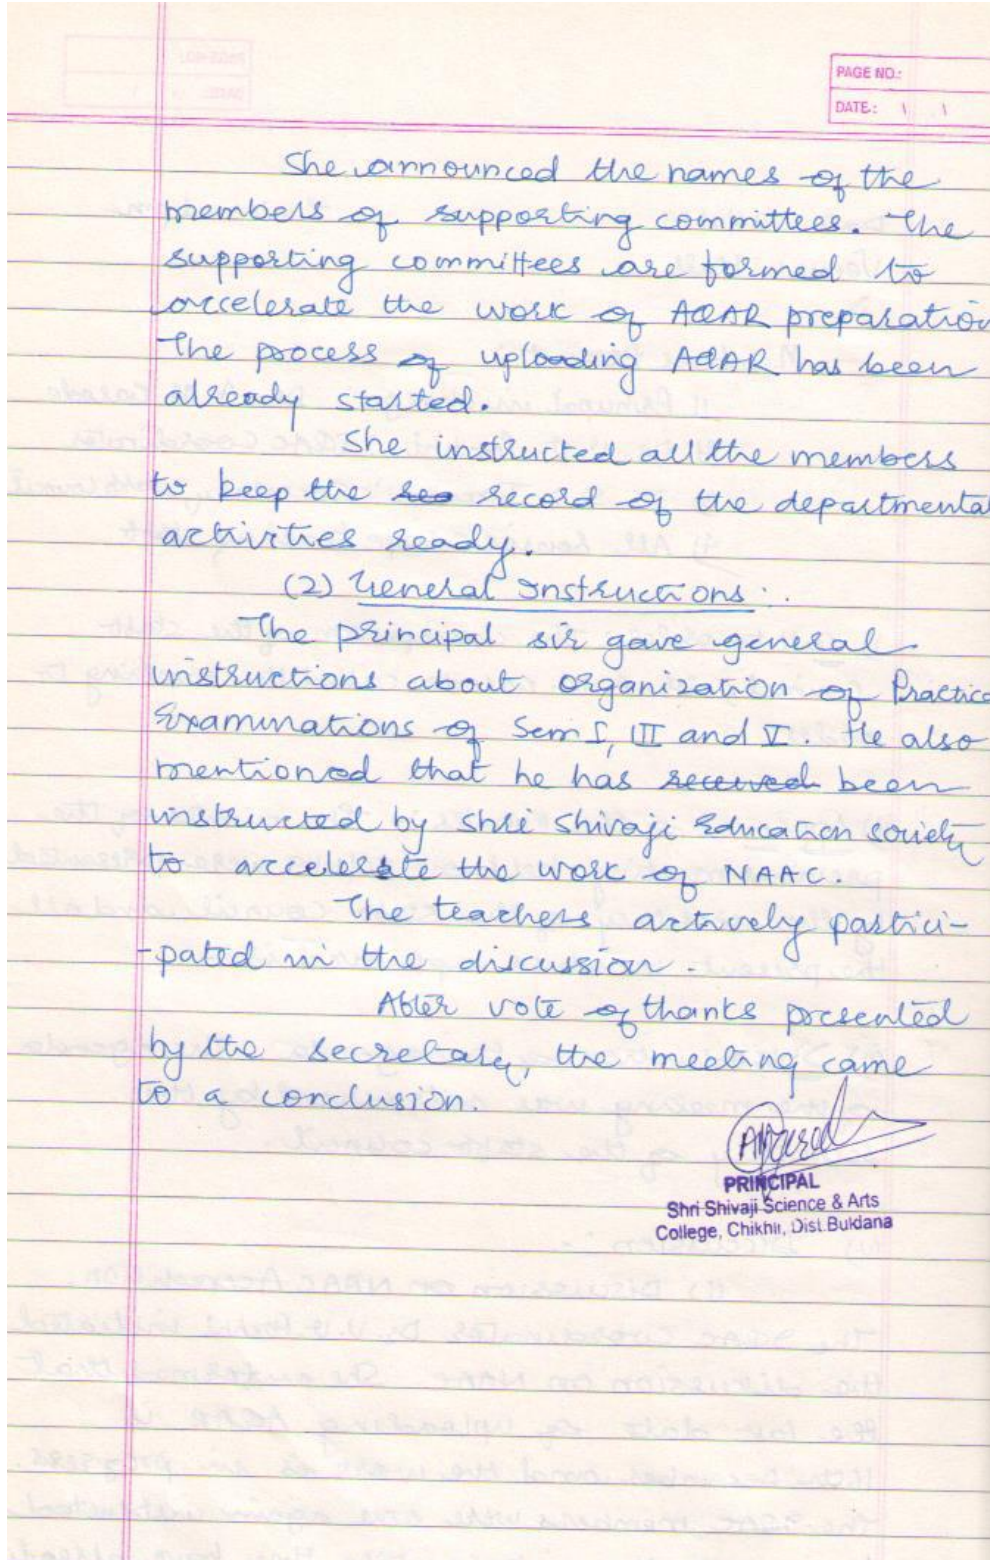 PAGE NO.:
DATE:
She announced the names of the
members of supporting committees. The
supporting committees are formed to
accelerate the work of AQAR preparation
The process of uploading AQAR has been
already started.
She instructed all the members
to keep the record of the departmental
activities ready.
(2) General Instructions :
The principal sir gave general
instructions about organization of Practica
Examinations of Sem I, III and V. He also
mentioned that he has received been
instructed by Shri Shivaji Education society
to accelerate the work of NAAC.
The teachers actively partici-
-pated in the discussion.
After vote of thanks presented
by the secretary, the meeting came
to a conclusion.
PRINCIPAL
Shri Shivaji Science & Arts
College, Chikhli, Dist.Buldana